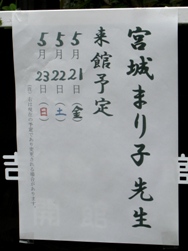 宮城まり子先生
来館予定
5月21(金)
5月22(土)
5月23(日)
吉
館